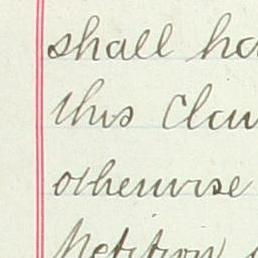 shall ha
this Clau
otherwise
Petition